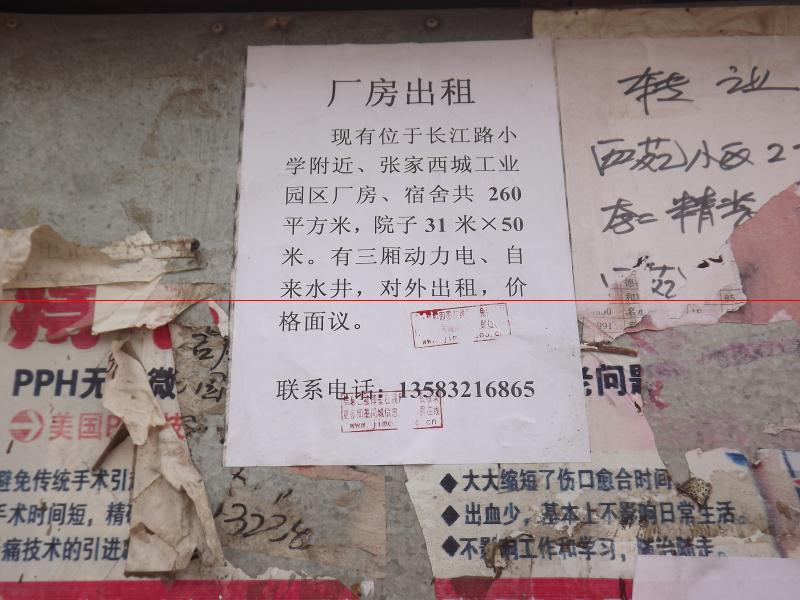 厂房出租
现有位于长江路小
学附近、张家西城工业
园区厂房、宿舍共 260
平方米，院子 31 米×50
米。有三厢动力电、自
来水井，对外出租，价
格面议。
联系电话：13583216865
转让
西苑小区2
精装
PPH无
微
美国P
技
避免传统手术引
手术时间短，精
痛技术的引进
3238
老问题
◆大大缩短了伤口愈合时间
◆出血少，基本上不影响日常生活。
◆不影响工作和学习，随治随走。